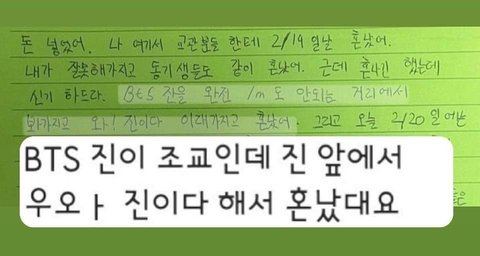 돈 넣었어. 나 여기서 교관분들 한테 2/19 일날 혼났어.
내가 잘못해가지고 동기생들도 같이 혼났어. 근데 혼나긴 했는데
신기 하드라. BTS 진을 완전 1m도 안되는 거리에서
봐가지고 와! 진이다 이래가지고 혼났어. 그리고 오늘 2/20 일에는
BTS 진이 조교인데 진 앞에서
우오ㅏ 진이다 해서 혼났대요